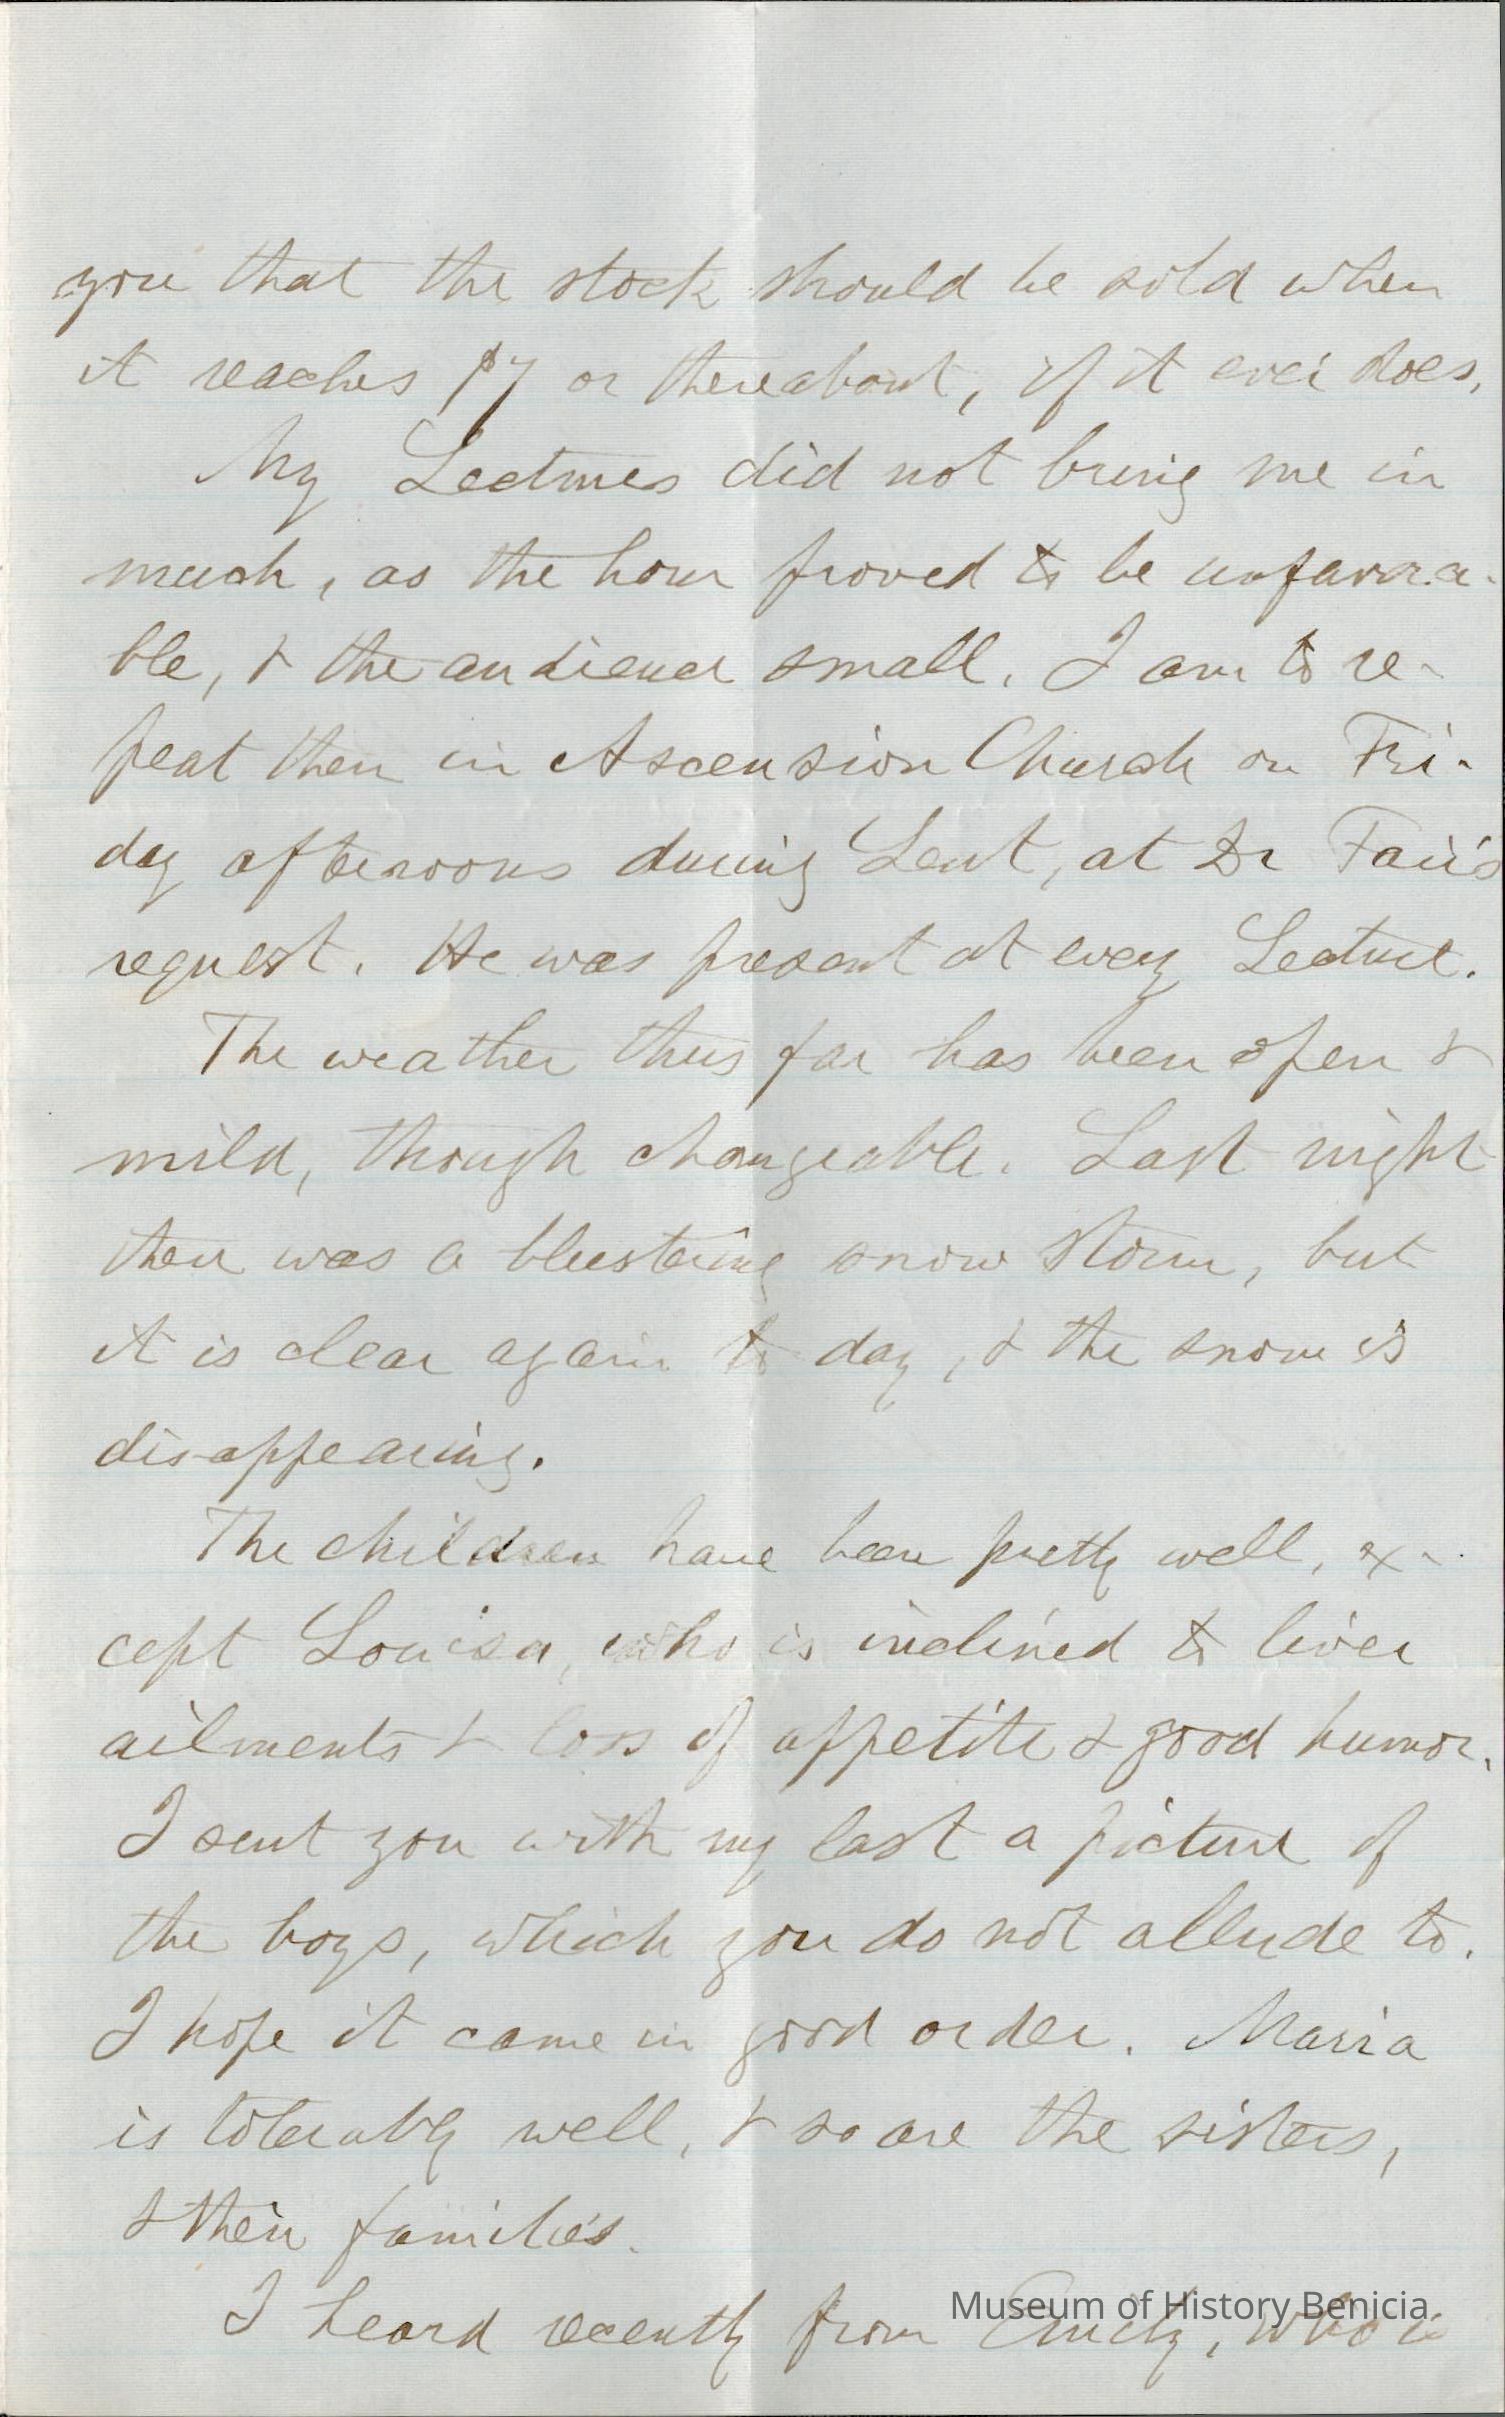 you that the stock should be sold when
it reaches $7 or thereabout, if it ever does.
My Lectures did not bring me in
much, as the hour proved to be unfavora-
ble, & the audience small. I am to re-
peat them in Ascension Church on Fri-
day afternoons during Lent, at Dr Fair's
request. He was present at every Lecture.
The weather thus far has been open &
mild, though changeable. Last night
there was a blustering snow storm, but
it is clear again to day, & the snow is
disappearing.
The children have been pretty well, ex-
cept Louisa, who is inclined to liver
ailments & loss of appetite & good humor.
I sent you with my last a picture of
the boys, which you do not allude to.
I hope it came in good order. Maria
is tolerably well, & so are the sisters,
& their families.
I heard recently from Emily, who is
Museum of History Benicia